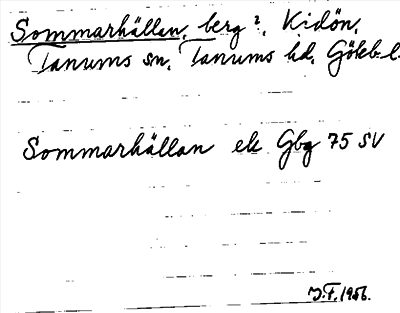 Sommarhällan, berg ?, Kidön,
Tanums sn, Tanums hd, Göteb. l.
Sommarhällan ek Gbg 75 SV
J.F. 1956.